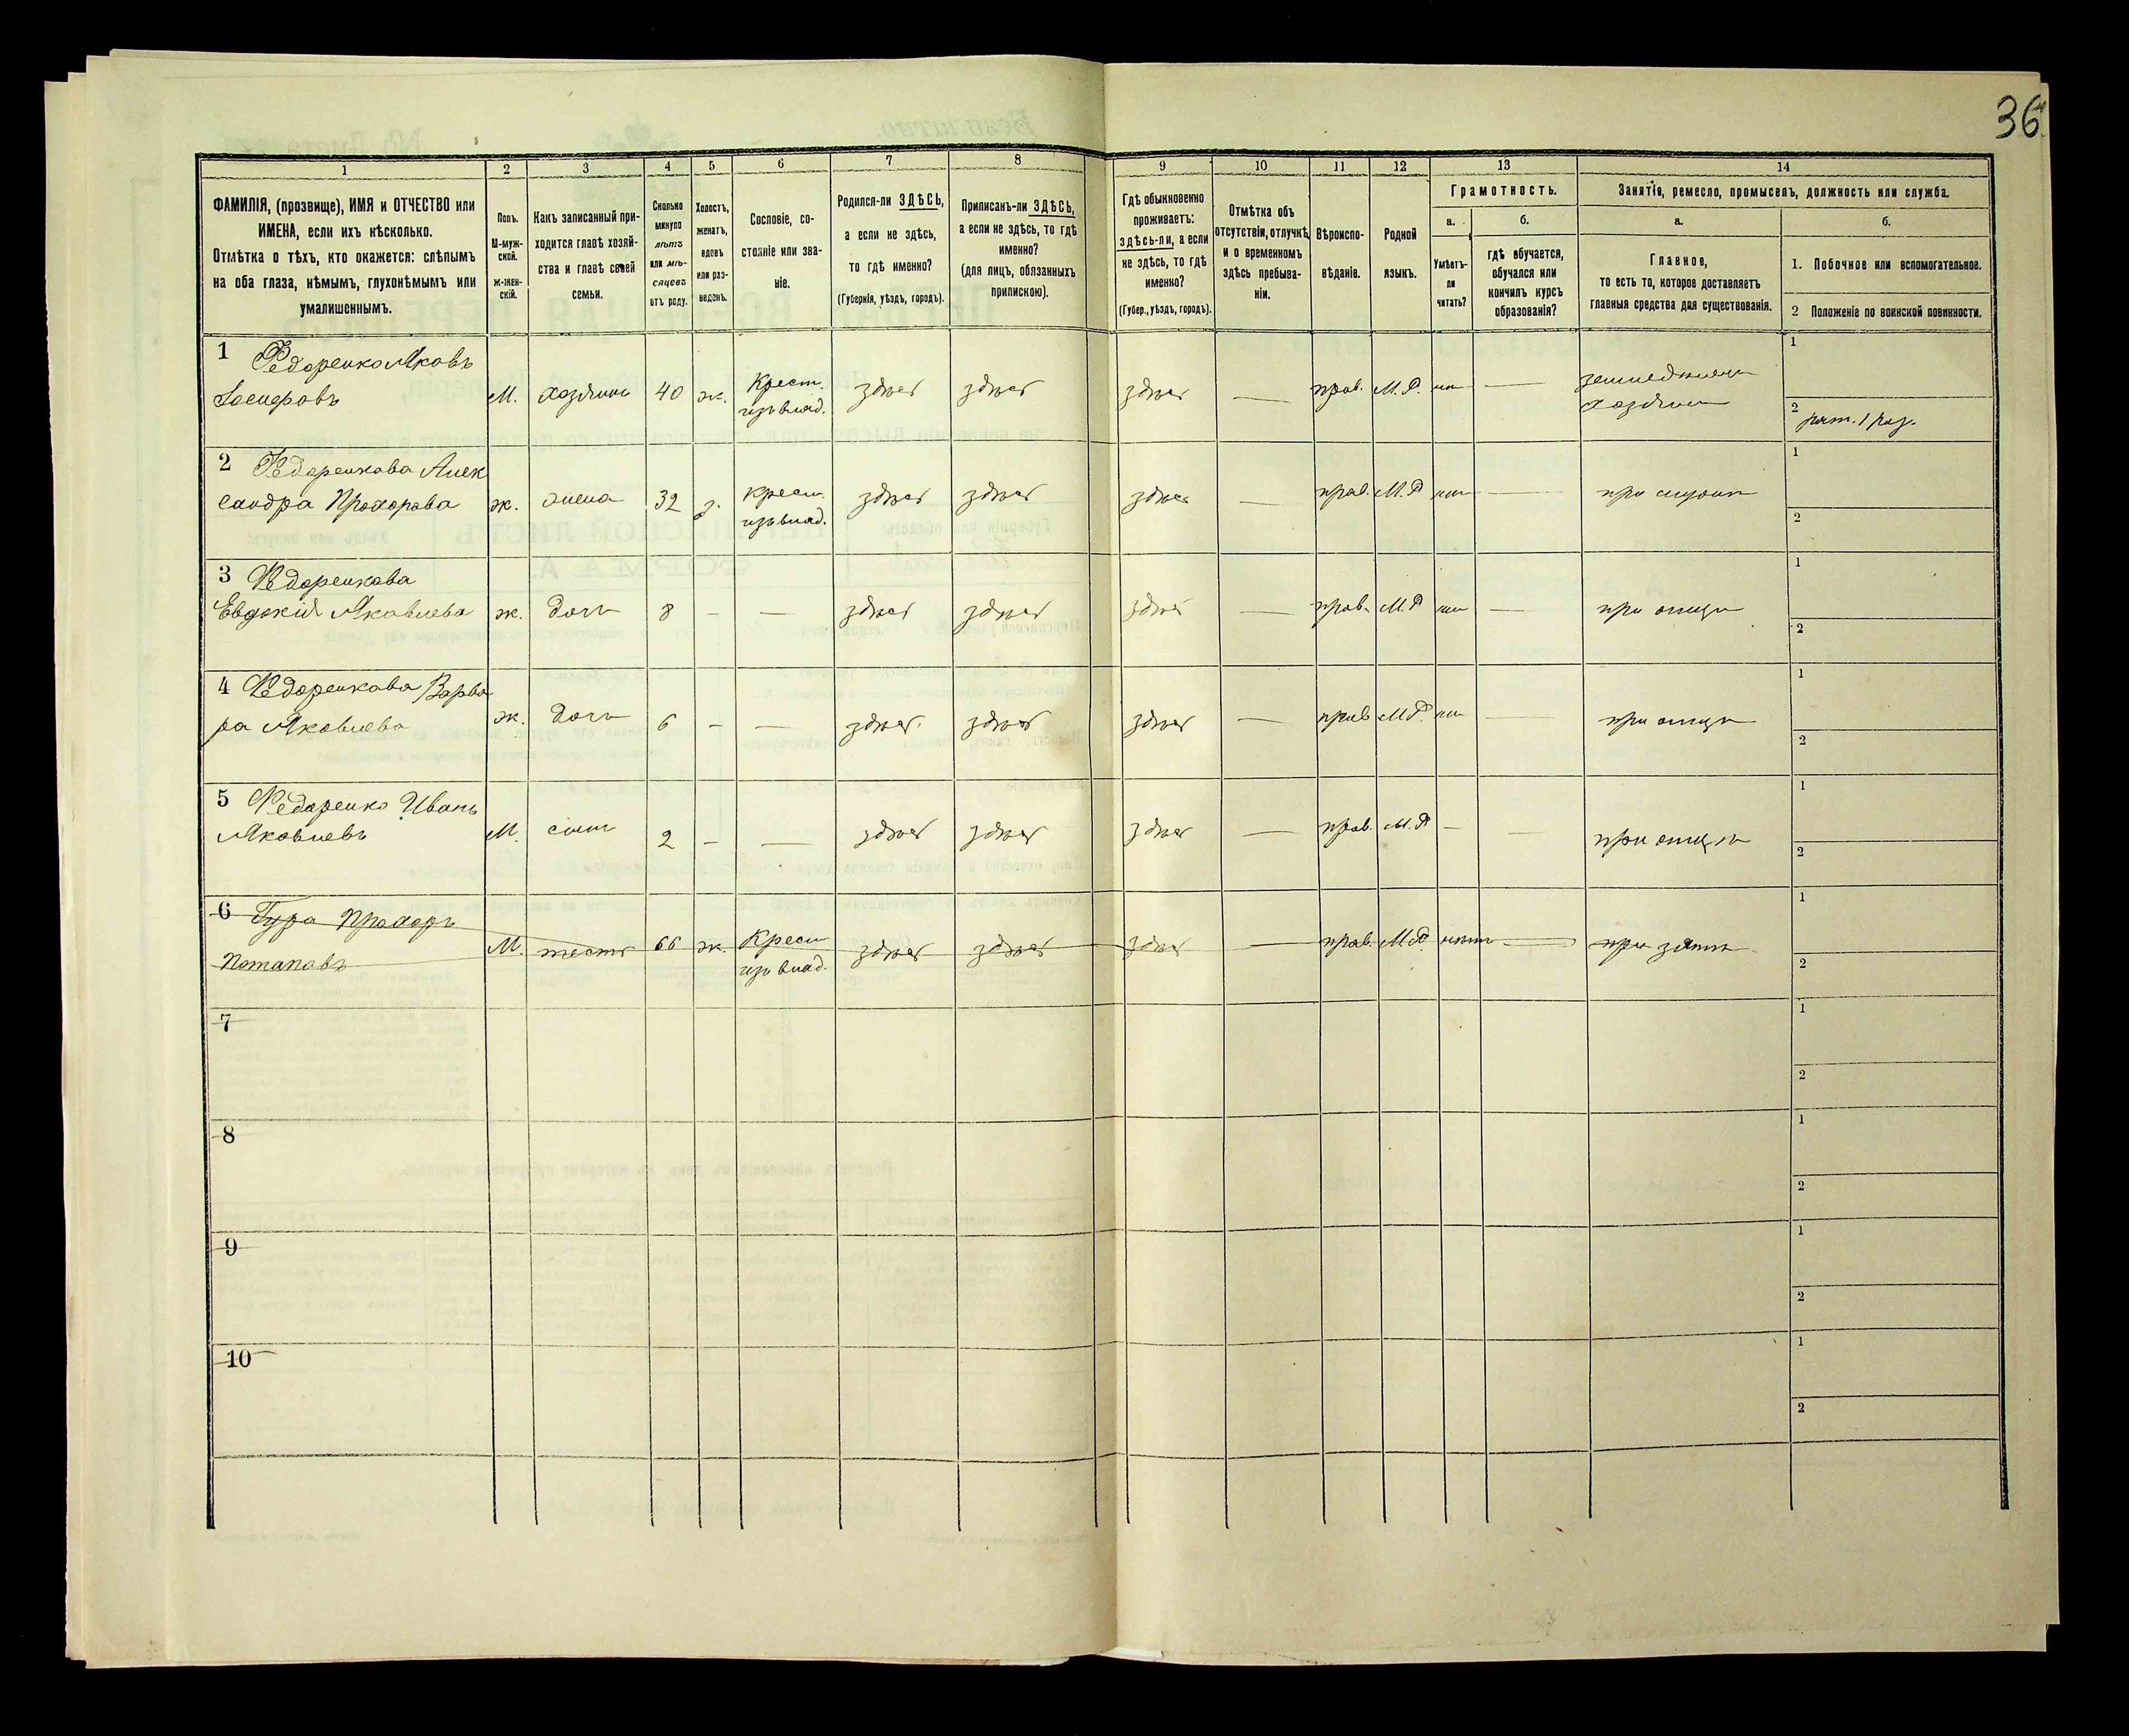 36
1 2 3 4 5 6 7 8 9 10 11 12 13 14
ФАМИЛІЯ, (прозвище), ИМЯ и ОТЧЕСТВО или
ИМЕНА, если ихъ нѣсколько.
Отмѣтка о тѣхъ, кто окажется: слѣпымъ
на оба глаза, нѣмымъ, глухонѣмымъ или
умалишеннымъ.
Полъ.
М-муж-
ской.
Ж-жен-
скій.
Какъ записанный при-
ходится главѣ хозяй-
ства и главѣ своей
семьи.
Сколько
минуло
лѣтъ
или мѣ-
сяцевъ
отъ роду.
Холостъ,
женатъ,
вдовъ
или раз-
веденъ.
Сословіе, со-
стояніе или зва-
ніе.
Родился-ли ЗДѢСЬ,
а если не здѣсь,
то гдѣ именно?
(Губернія, уѣздъ, городъ).
Приписанъ-ли ЗДѢСЬ,
а если не здѣсь, то гдѣ
именно?
(для лицъ, обязанныхъ
припискою).
Гдѣ обыкновенно
проживаетъ:
здѣсь-ли, а если
не здѣсь, то гдѣ
именно?
(Губер., уѣздъ, городъ).
Отмѣтка объ
отсутствіи, отлучкѣ,
и о временномъ
здѣсь пребыва-
ніи.
Вѣроиспо-
вѣданіе.
Родной
языкъ.
Грамотность.
а.
Умѣетъ-
ли
читать?
б.
гдѣ обучается,
обучался или
кончилъ курсъ
образованія?
Занятіе, ремесло, промыселъ, должность или служба.
а.
Главное,
то есть то, которое доставляетъ
главныя средства для существованія.
б.
1. Побочное или вспомогательное.
2 Положеніе по воинской повинности.
1 Федоренко Яковъ
М. хозяинъ 40 ж. Крест. здѣсь здѣсь здѣсь — прав. М.Р.
изъ влад.
хозяинъ
1
2 рат. 1 раз.
2 Федоренкова Алек
сандра Прохорова ж. жена 32 з. крест. здѣсь здѣсь здѣсь — прав. М.Р. —
изъ влад.
1
2
3 Федоренкова
Евдокія Яковлева ж. дочь 8 - — здѣсь здѣсь здѣсь — прав. М.Р. — при отцѣ
1
2
4 Федоренкова Варва
ра Яковлева ж. дочь 6 - — здѣсь здѣсь здѣсь — прав. М.Р. — при отцѣ
1
2
5 Федоренко Иванъ
Яковлевъ М. сынъ 2 - — здѣсь здѣсь здѣсь — прав. М.Р. - — при отцѣ
1
2
6 Гура Прохоръ
Потаповъ М. тесть 66 ж. Крест здѣсь здѣсь здѣсь — прав. М.Р. нѣтъ — при зятѣ
изъ влад.
1
2
7
1
2
8
1
2
9
1
2
10
1
2